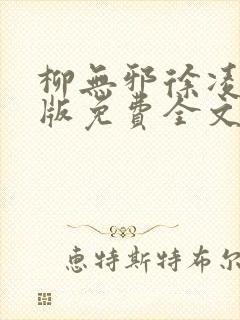 柳無邪徐凌
版免費全文
恵特斯特布尔